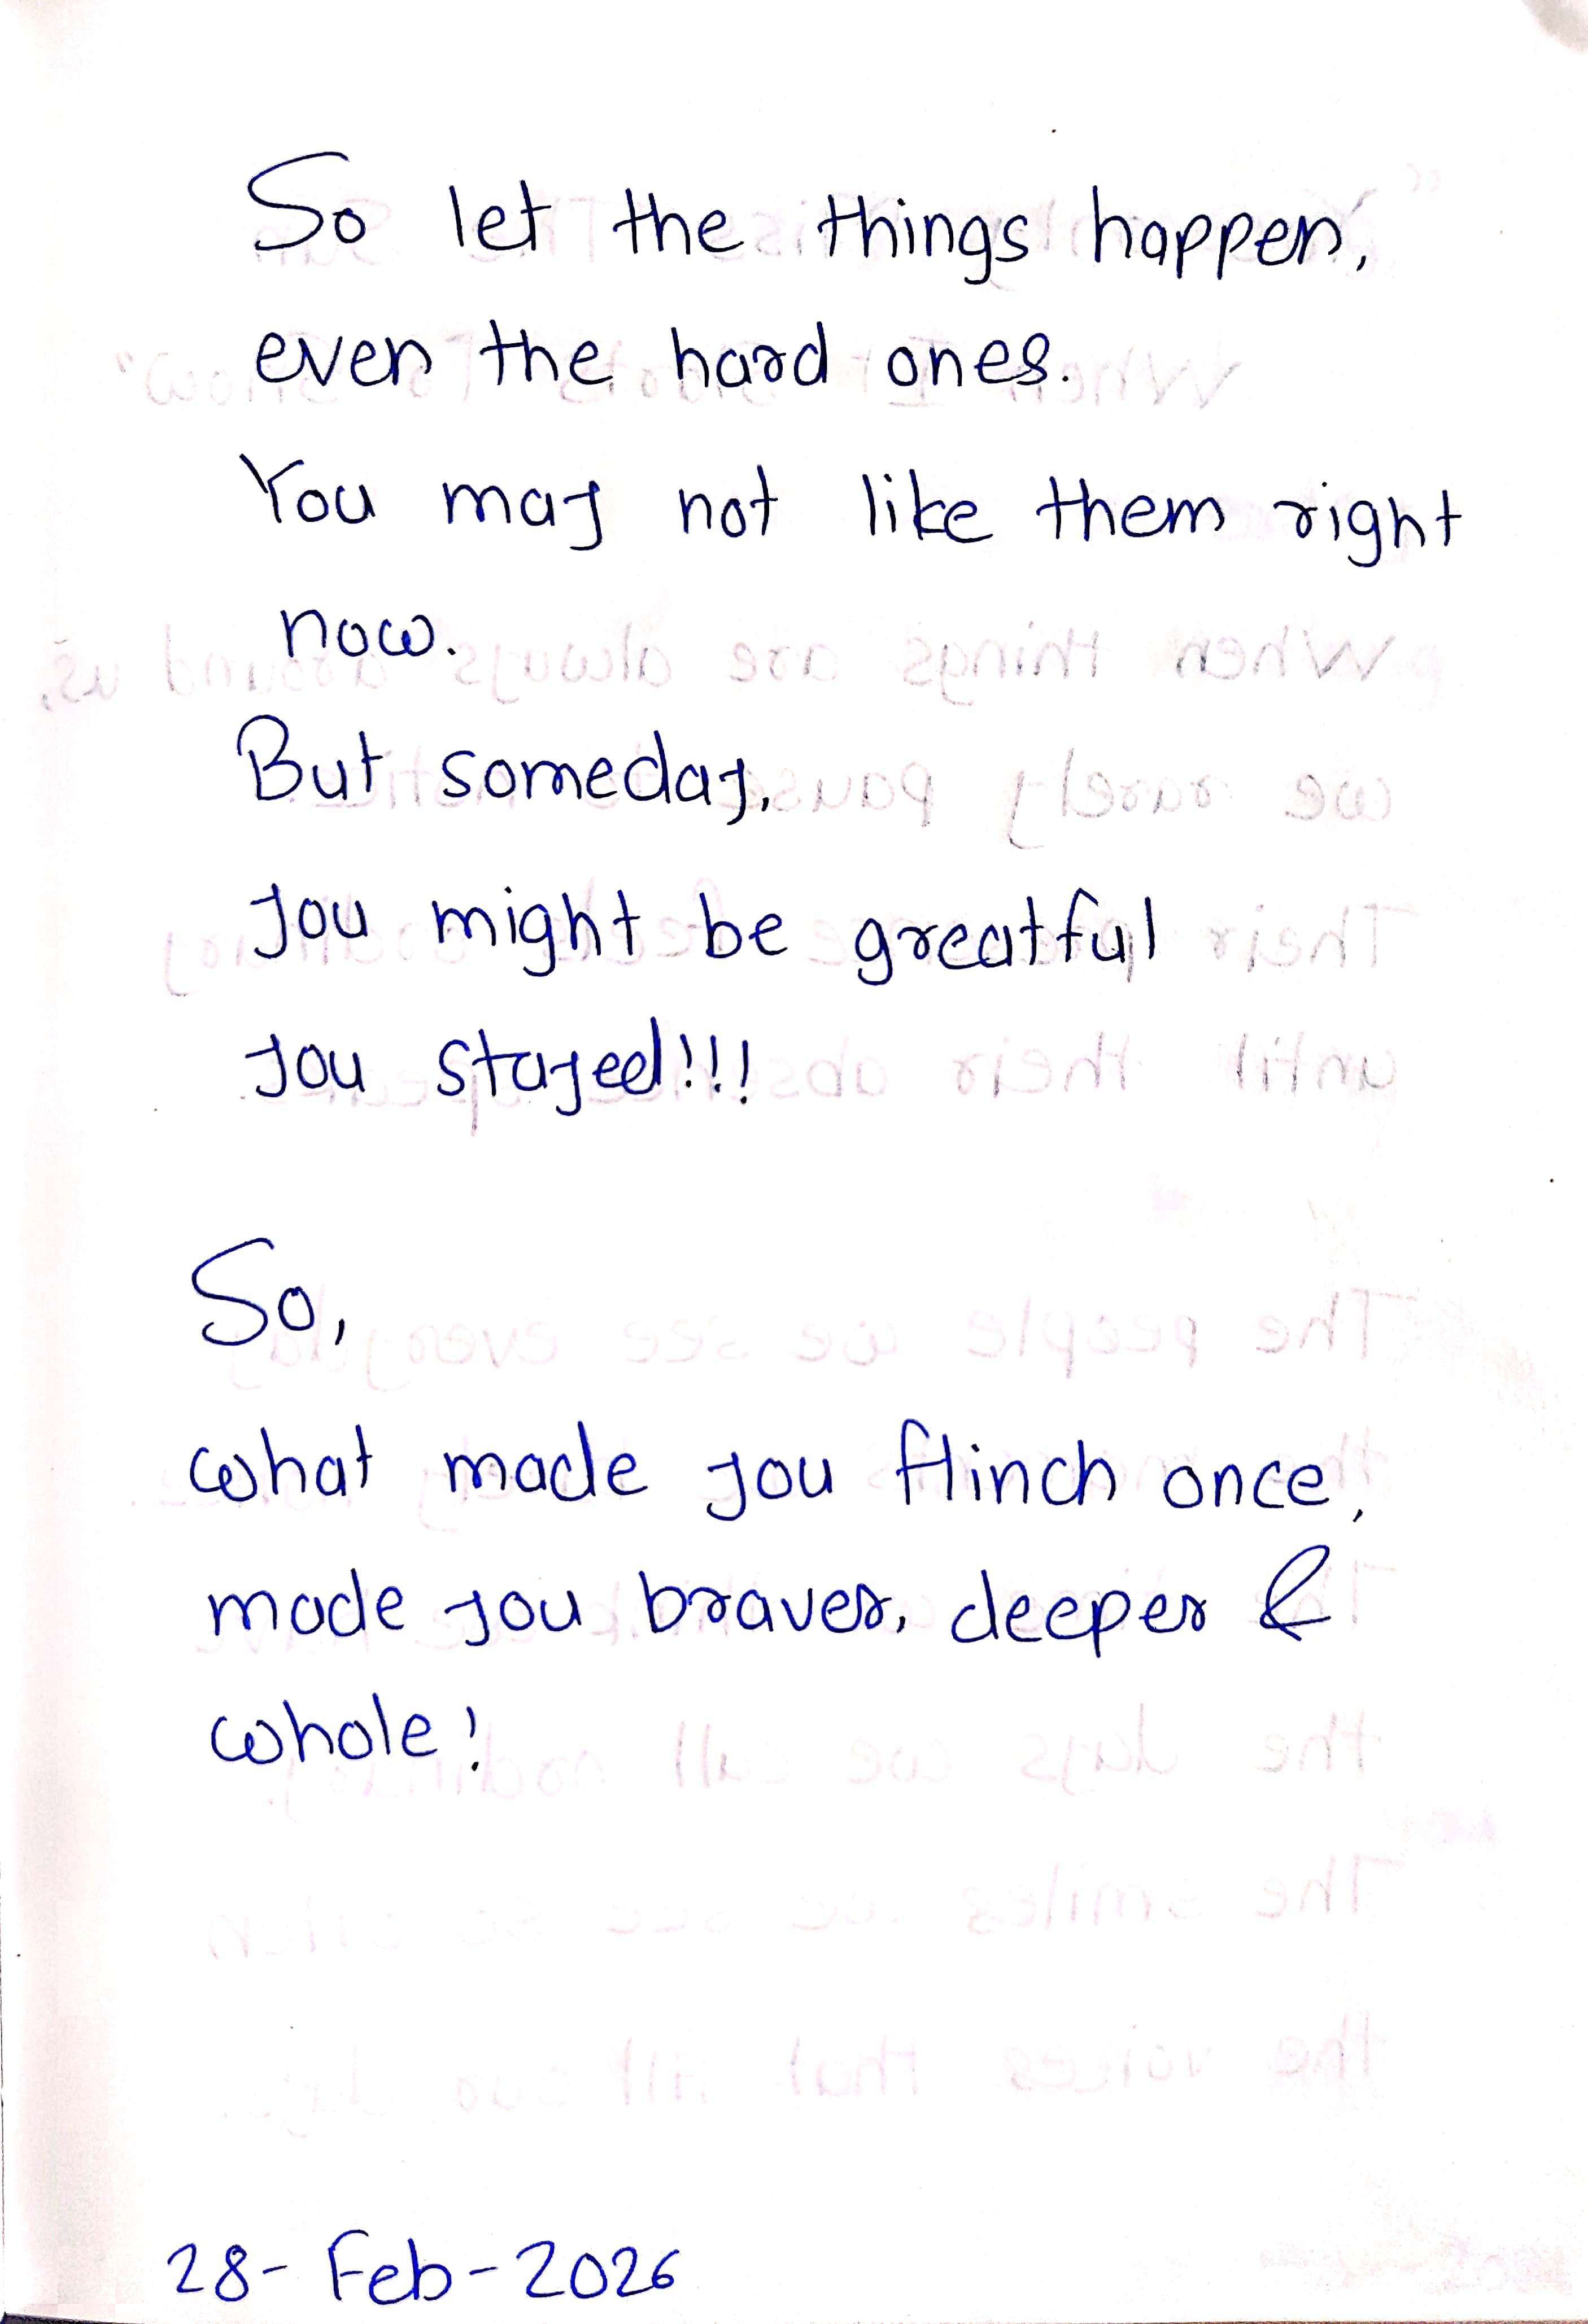 So let the things happen,
even the hard ones.
You may not like them right
now.
But someday,
you might be greatful
you stayed!!!
So,
what made you flinch once,
made you braver, deeper &
whole!
28-Feb-2026